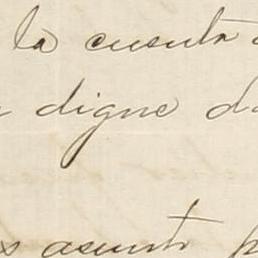 la cuenta
digne
asunto